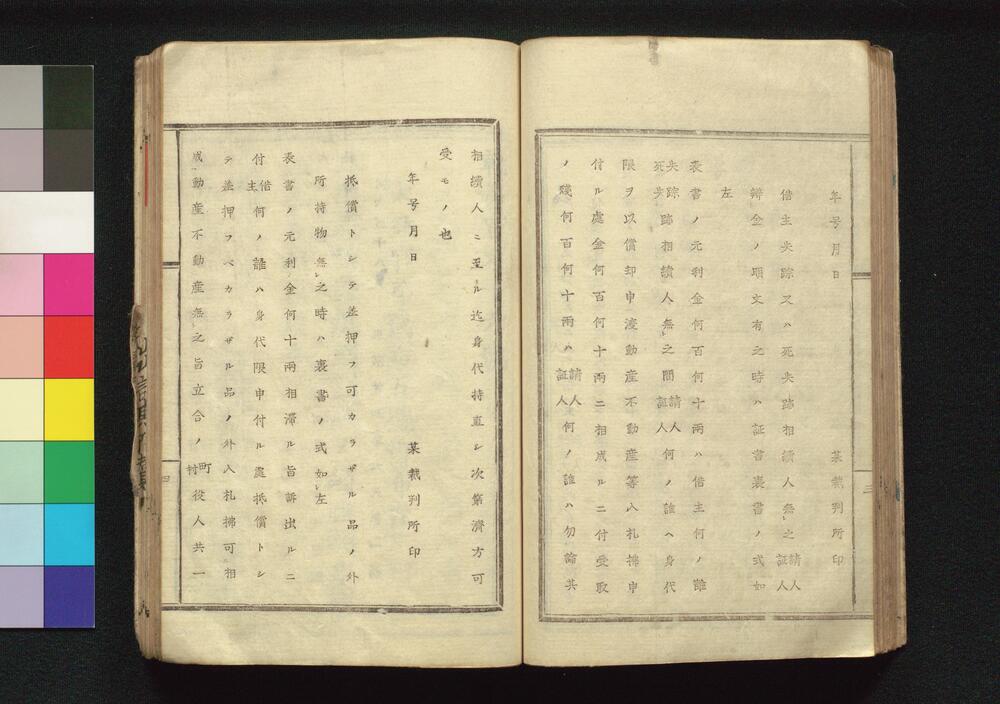 年号月日
某裁判所印
借主失踪又ハ死失跡相續人無之請人証人
辨金ノ順文有之時ハ証書裏書ノ式如
左
表書ノ元利金何百何十兩ハ借主何ノ誰
失踪死失跡相續人無之間請人証人何ノ誰ヘ身代
限ヲ以償却申渡動産不動産等入札拂申
付ル處金何百何十兩ニ相成ルニ付受取
ノ殘何百何十兩ハ請人証人何ノ誰ハ勿論其
三
相續人ニ至ル迄身代持直シ次第濟方可
受モノ也
年号月日
某裁判所印
抵償トシテ差押フ可カラザル品ノ外
所持物無之時ハ裏書ノ式如左
表書ノ元利金何十兩相滯ル旨訴出ルニ
付借主何ノ誰ハ身代限申付ル處抵償トシ
テ差押フベカラザル品ノ外入札拂可相
成動産不動産無之旨立合ノ町村役人共一
四